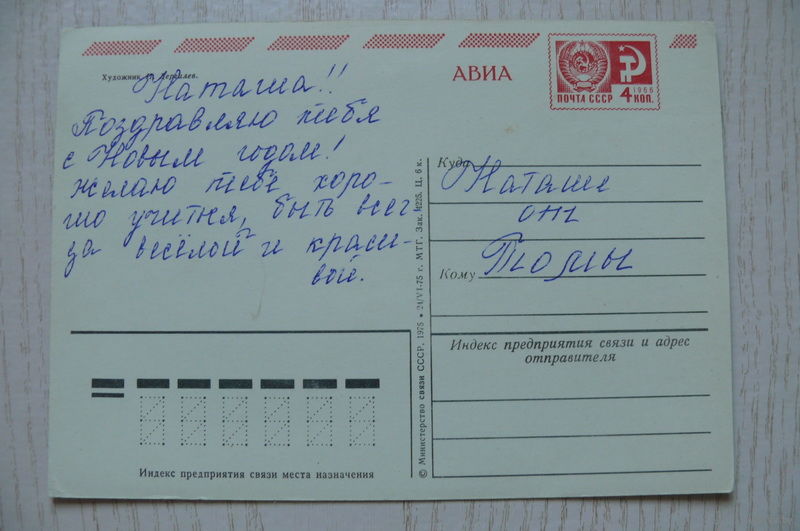 Художник
Наташа!!
Поздравляю тебя
с Новым годом!
желаю тебе хоро-
шо учится, быть всег
да весёлой и краси-
вой.
АВИА
ПОЧТА СССР
1966
4 КОП.
Куда
Наташе
от
Томы
Кому
Индекс предприятия связи и адрес
отправителя
Индекс предприятия связи места назначения
© Министерство связи СССР, 1975 • 24/VI-75 г. МТГ. Зак. Ц. 6 к.